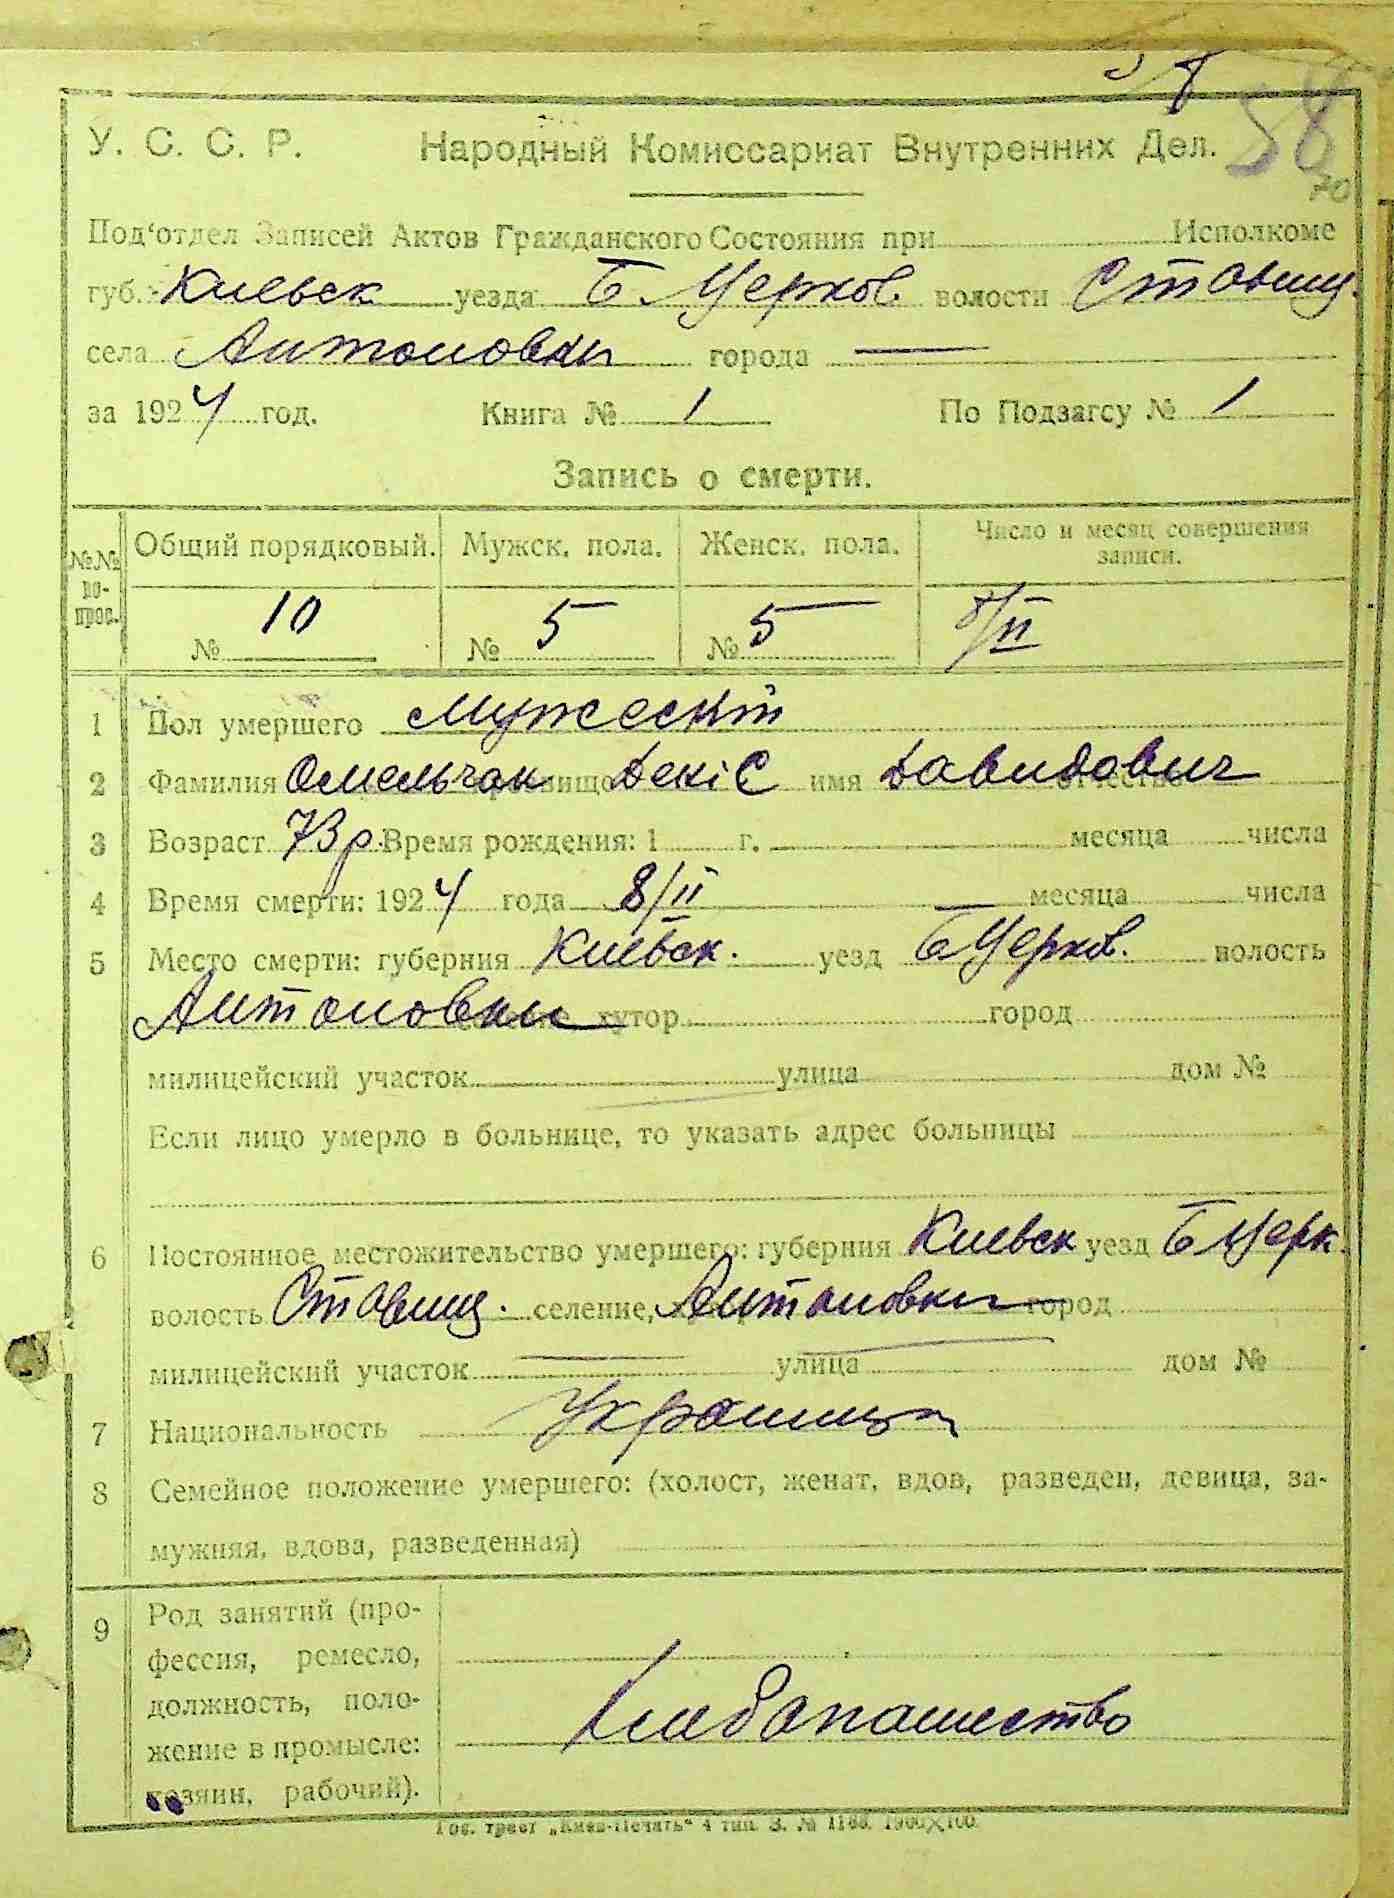 58
70
У. С. С. Р. Народный Комиссариат Внутренних Дел.
Под‘отдел Записей Актов Гражданского Состояния при Исполкоме
губ. Киевск уезда Б. Церков. волости Ставищ.
села Антоновки города —
за 1924 год. Книга № 1 По Подзагсу № 1
Запись о смерти.
№№ вопрос. Общий порядковый. Мужск. пола. Женск. пола. Число и месяц совершения записи.
№ 10 № 5 № 5 8/II
1 Пол умершего Мужеский
2 Фамилия Омельчак Декіс имя Давидович отчество
3 Возраст 73 р. Время рождения: 1 г. месяца числа
4 Время смерти: 1924 года 8/II месяца числа
5 Место смерти: губерния Киевск. уезд Б Церков. волость
Антоновки хутор город
милицейский участок улица дом №
Если лицо умерло в больнице, то указать адрес больницы
6 Постоянное местожительство умершего: губерния Киевск уезд Б Церк.
волость Ставищ. селение, Антоновки город
милицейский участок улица дом №
7 Национальность Украинцъ
8 Семейное положение умершего: (холост, женат, вдов, разведен, девица, за-
мужняя, вдова, разведенная)
9 Род занятий (про-
фессия, ремесло,
должность, поло-
жение в промысле:
хозяин, рабочий).
Хлебопашество
Гос. трест „Киев-Печать“ 4 тип. З. № 1188. 1900X100.